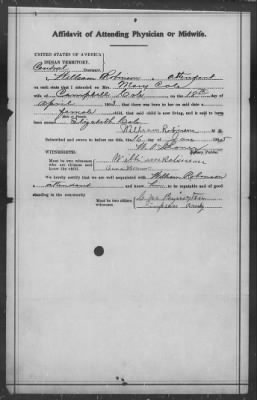 Affidavit of Attending Physician or Midwife.
UNITED STATES OF AMERICA
INDIAN TERRITORY.
Central District.
I, William Robinson, a attendant
on each state that I attended on Mrs. Mary Cole
wife of Campbell Cole on the 18th day of
April, 190 that there was born to her on said date a
female child; that said child is now living, and is said to have
been named Elizabeth Cole
William Robinson M. D.
Subscribed and sworn to before me this day of June 1905
Notary Public.
WITNESSETH:
Must be two witnesses
who are citizens and
know the child.
We hereby certify that we are well acquainted with William Robinson
a attendant and know him to be reputable and of good
standing in the community
Must be two citizen
witnesses